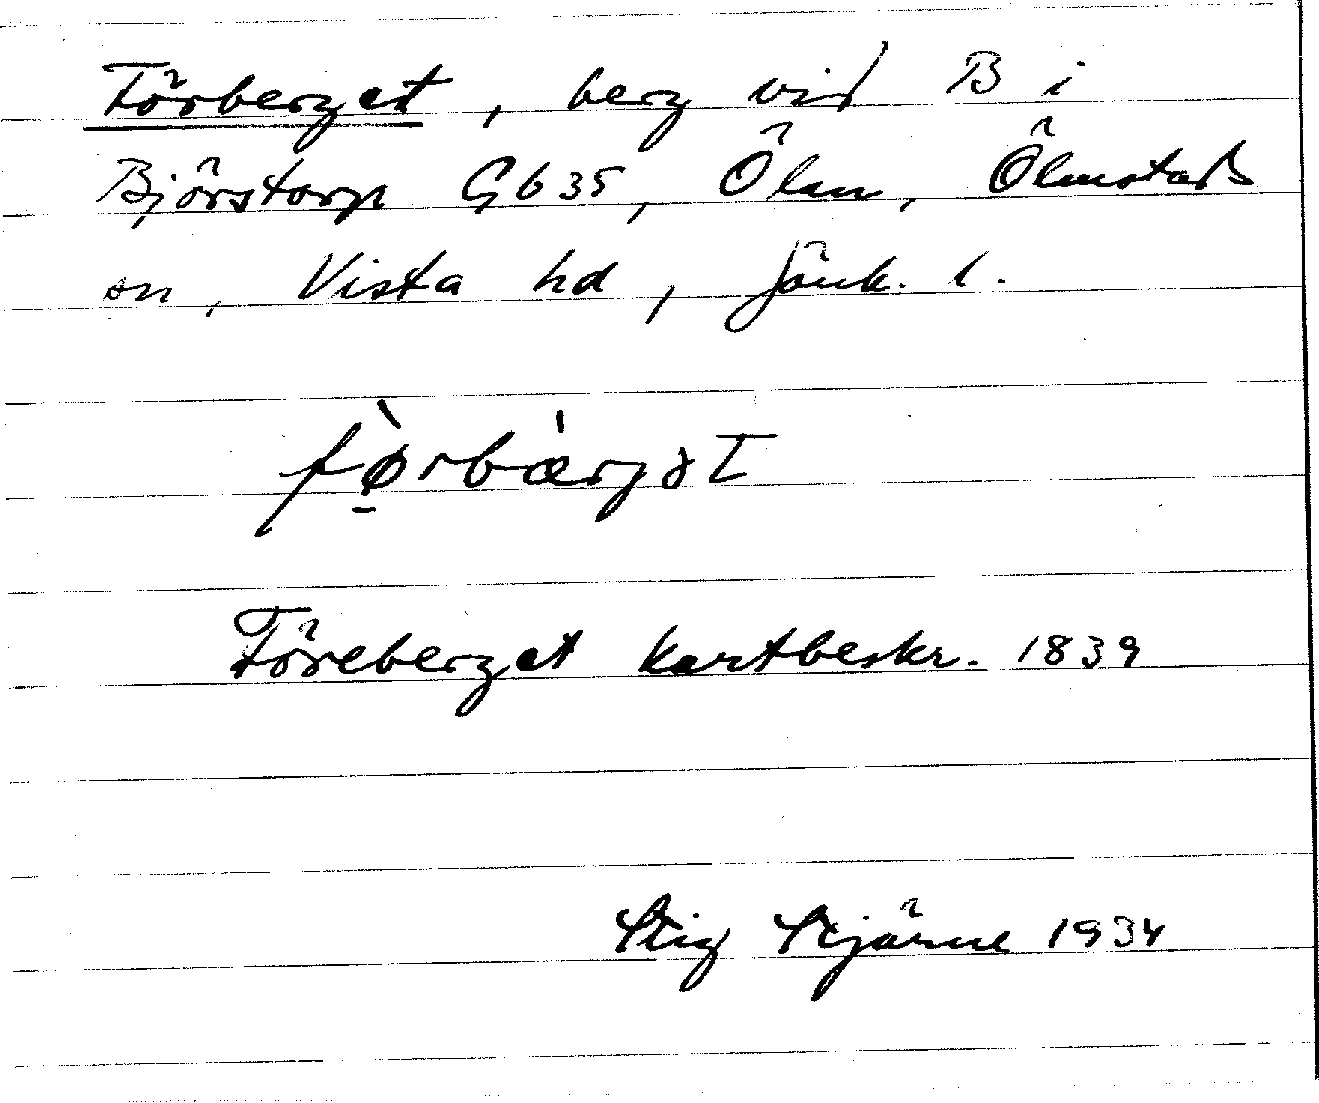 Förberget, berg vid B i
Björstorp Gb35, Ölm, Ölmstad
sn, Vista hd, Jönk. l.
fø̀rbæ̀rjət
Föreberget kartbeskr. 1839
Stig Stjärne 1934